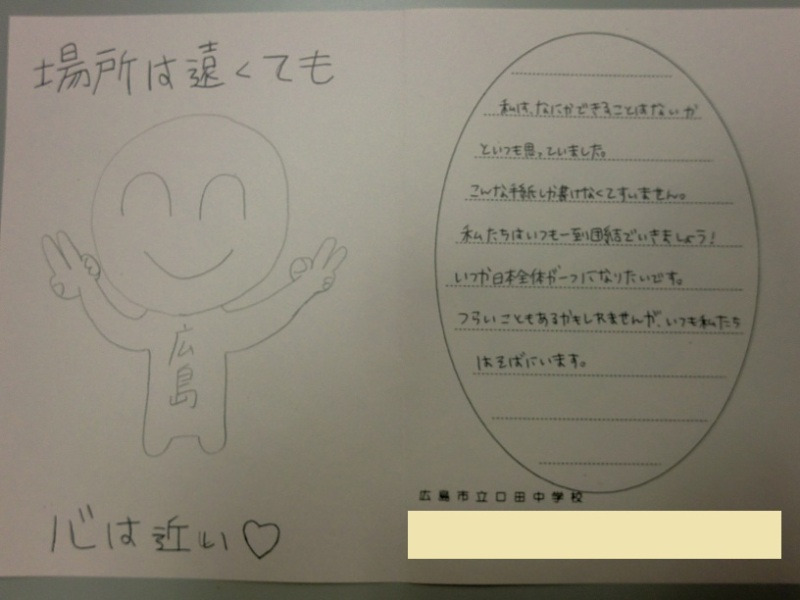 場所は遠くても
広島
心は近い♡
私は、なにかできることはないか
といつも思っていました。
こんな手紙しか書けなくてすいません。
私たちはいつも一致団結でいきましょう!
いつか日本全体が一つになりたいです。
つらいこともあるかもしれませんが、いつも私たち
はそばにいます。
広島市立口田中学校